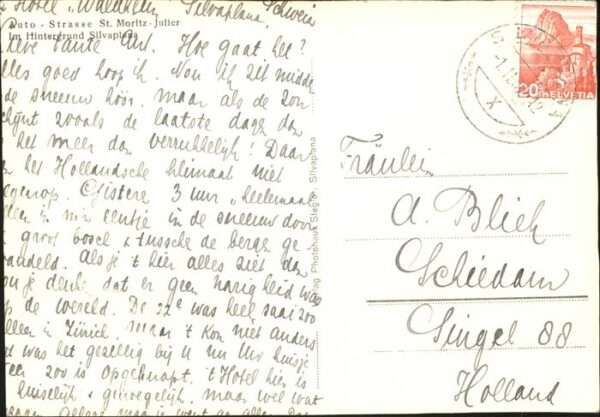 Hotel Waldheim Silvaplana, Schweiz
Auto - Strasse St. Moritz-Julier
Im Hintergrund Silvaplana
Lieve Tante Hoe gaat het?
alles goed hoop ik. Nou ik zit midden
de sneeuw hoor. maar als de zon
schijnt zooals de laatste dagen dan
het meer dan verrukkelijk! Daar
het Hollandsche klimaat niet
Gistere 3 uur "heelemaal
in m'n eentje in de sneeuw door
groot bosch & tussche de berge ge
wandeld. Als je 't hier alles ziet dan
zou je denke dat er geen narigheid was
op de wereld. De 22e was heel saai zoo
alleen in Zürich. Maar 't kon niet anders
was het gezellig bij u nu Uw huisje
weer zoo is opgeknapt. 't Hotel hier is
huiselijk & genoegelijk. maar wel wat
Photohaus Silvaplana
20 HELVETIA
Fräulein
A. Bliek
Schiedam
Singel 88
Holland